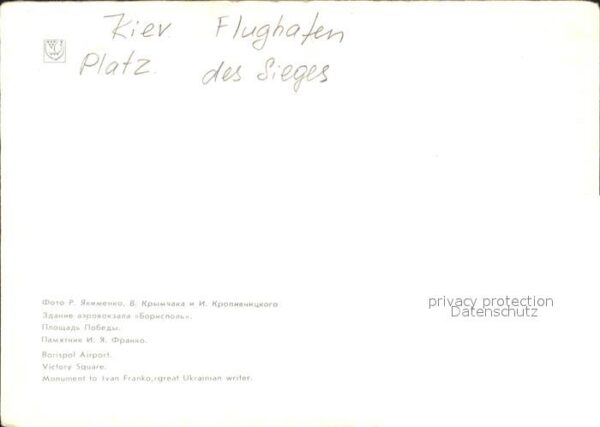 Kiev Flughafen
Platz des Sieges
Фото Р. Якименко, В. Крымчака и И. Кропивницкого
Здание аэровокзала «Борисполь».
Площадь Победы.
Памятник И. Я. Франко.
Borispol Airport.
Victory Square.
Monument to Ivan Franko,rgreat Ukrainian writer.
privacy protection
Datenschutz